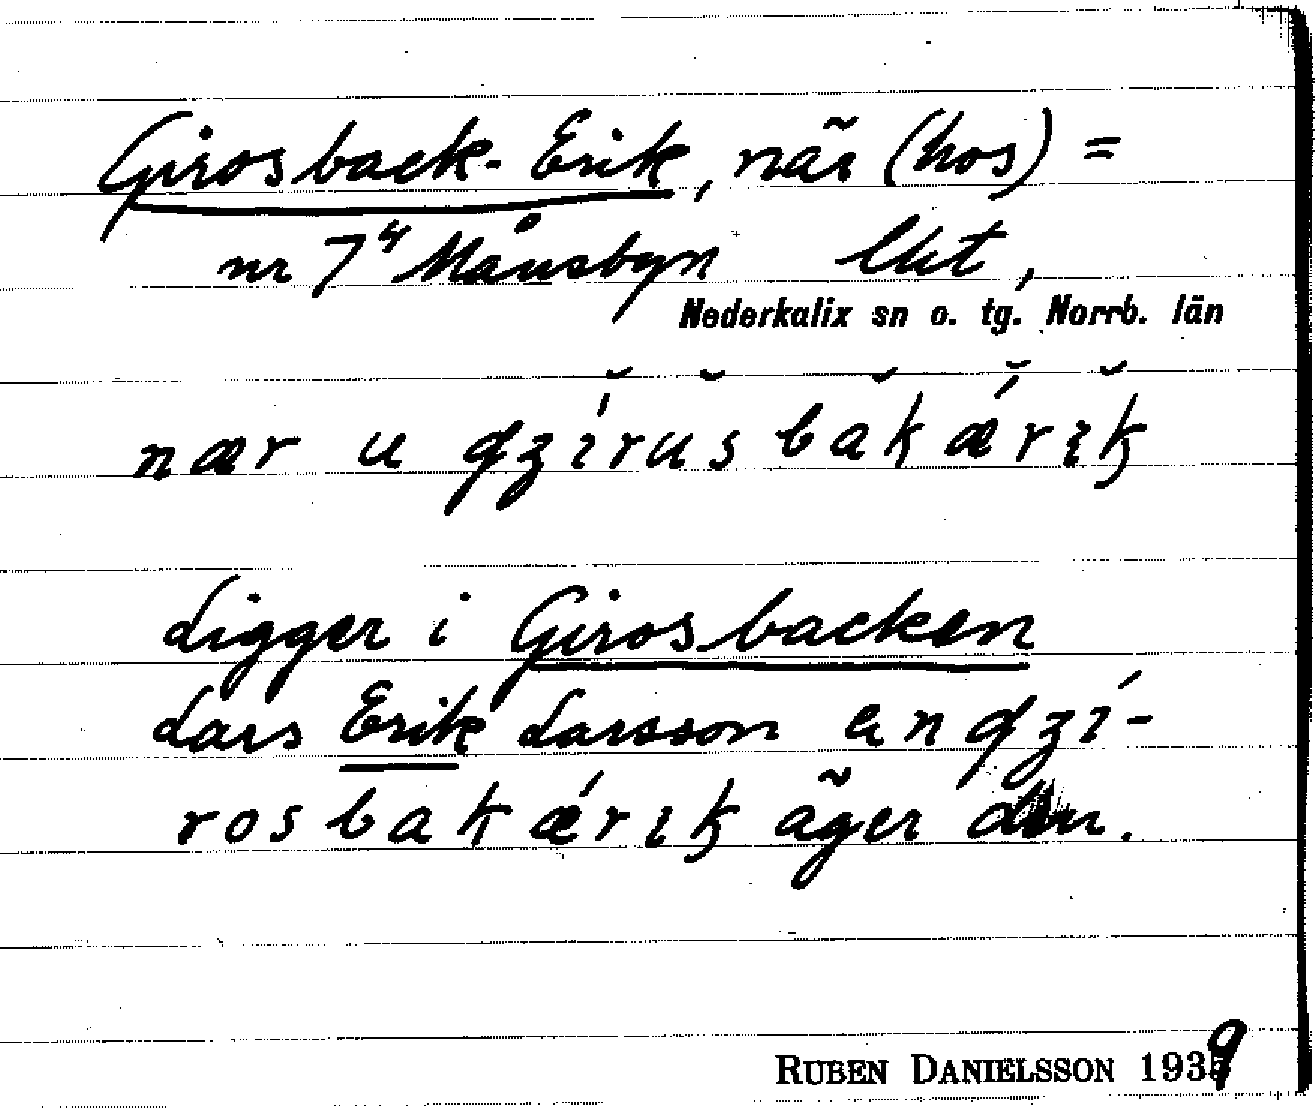 Girosback-Erik, när (hos) =
nr 7⁴ Månsbyn lht,
Nederkalix sn o. tg. Norrb. län
nær u gʒírŭsbăkǽrĭk
Ligger i Girosbacken
Lars Erik Larsson en gʒí-
rosbakǽrɩk äger den.
RUBEN DANIELSSON 1939